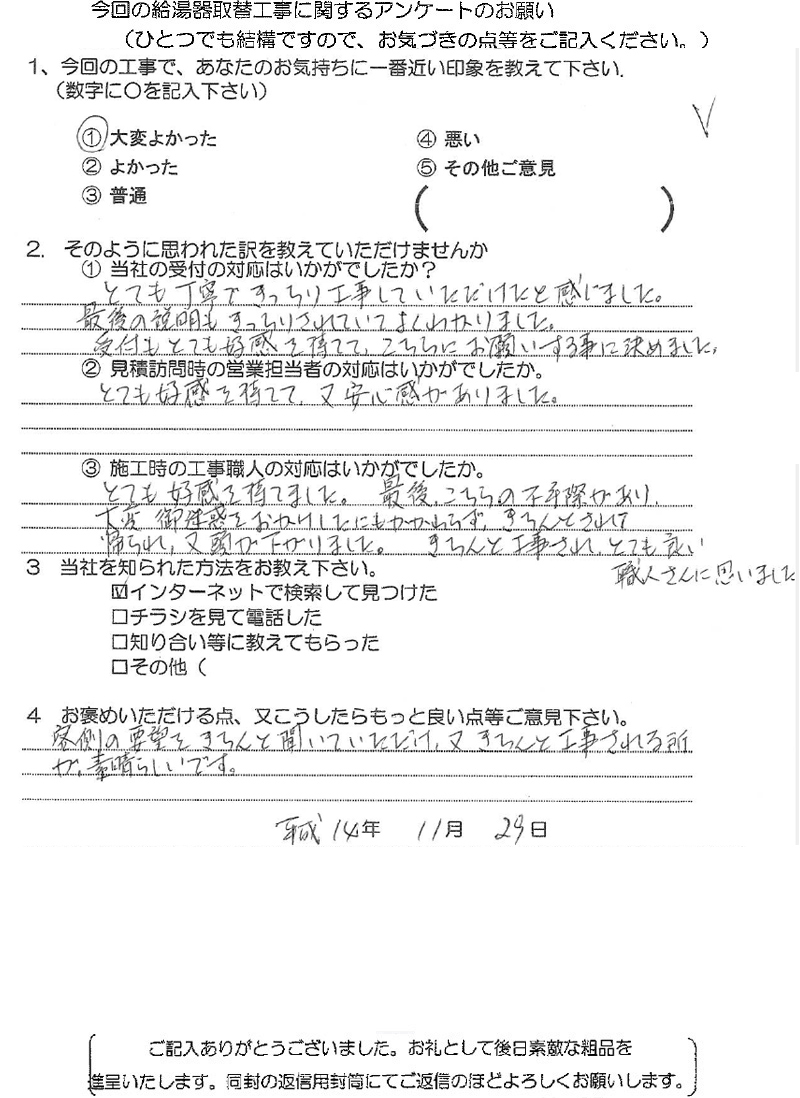 今回の給湯器取替工事に関するアンケートのお願い
（ひとつでも結構ですので、お気づきの点等をご記入ください。）
1、今回の工事で、あなたのお気持ちに一番近い印象を教えて下さい.
（数字に〇を記入下さい）
① 大変よかった ④ 悪い
② よかった ⑤ その他ご意見
③ 普通 （ ）
2. そのように思われた訳を教えていただけませんか
① 当社の受付の対応はいかがでしたか？
とても丁寧できっちり工事していただけたと感じました。
最後の説明もきっちりされていてよくわかりました。
受付もとても好感を持てて、こちらにお願いする事に決めました。
② 見積訪問時の営業担当者の対応はいかがでしたか。
とても好感を持てて、又安心感がありました。
③ 施工時の工事職人の対応はいかがでしたか。
とても好感を持てました。 最後、こちらの不手際があり、
大変御迷惑をおかけしたにもかかわらず、きちんとされて
帰られ、又頭が下がりました。 きちんと工事され、とても良い
職人さんに思いました
3 当社を知られた方法をお教え下さい。
☑インターネットで検索して見つけた
□チラシを見て電話した
□知り合い等に教えてもらった
□その他（
4 お褒めいただける点、又こうしたらもっと良い点等ご意見下さい。
客側の要望をきちんと聞いていただけ、又きちんと工事される所
が、素晴らしいです。
平成 14年 11月 29日
ご記入ありがとうございました。お礼として後日素敵な粗品を
進呈いたします。同封の返信用封筒にてご返信のほどよろしくお願いします。